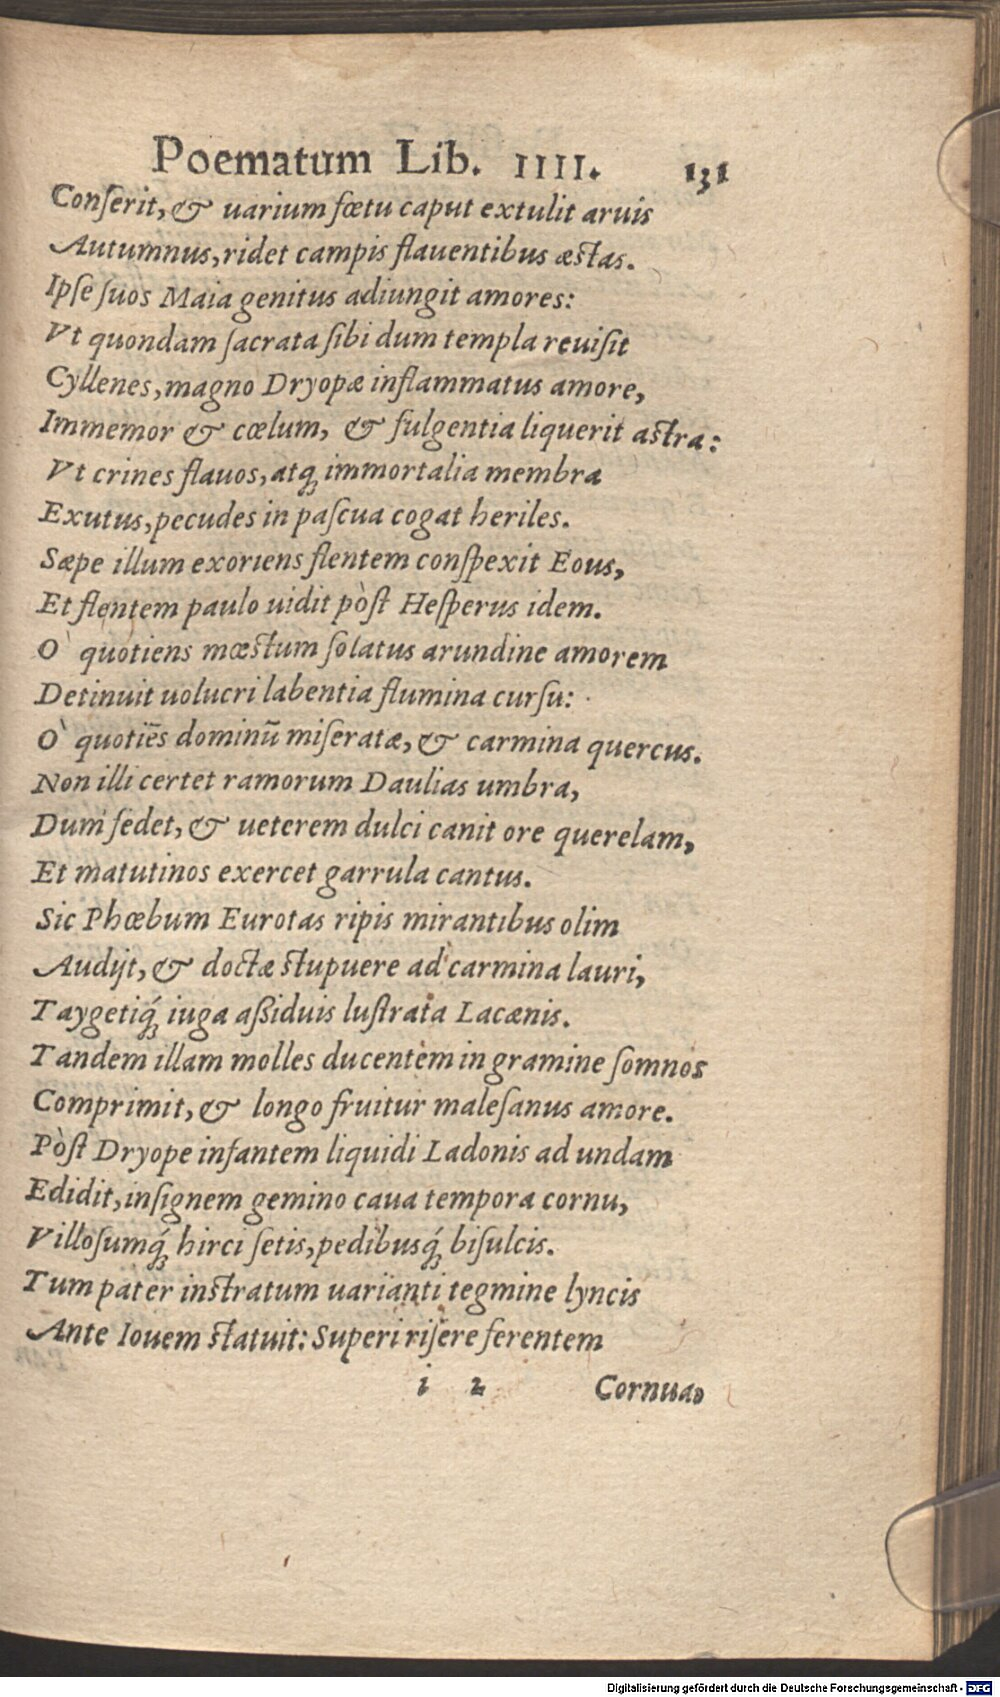 Poematum Lib. IIII. 131
Conſerit, & uarium fœtu caput extulit aruis
Autumnus, ridet campis flauentibus æſtas.
Ipſe ſuos Maia genitus adiungit amores:
Vt quondam ſacrata ſibi dum templa reuiſit
Cyllenes, magno Dryopæ inflammatus amore,
Immemor & cœlum, & fulgentia liquerit aſtra:
Vt crines flauos, atq; immortalia membra
Exutus, pecudes in paſcua cogat heriles.
Sæpe illum exoriens flentem conſpexit Eous,
Et flentem paulo uidit pòſt Heſperus idem.
O` quotiens mœſtum ſolatus arundine amorem
Detinuit uolucri labentia flumina curſu:
O` quotiēs dominū miſeratæ, & carmina quercus.
Non illi certet ramorum Daulias umbra,
Dum ſedet, & ueterem dulci canit ore querelam,
Et matutinos exercet garrula cantus.
Sic Phœbum Eurotas ripis mirantibus olim
Audijt, & doctæ ſtupuere ad carmina lauri,
Taygetiq́; iuga aßiduis luſtrata Lacænis.
Tandem illam molles ducentem in gramine ſomnos
Comprimit, & longo fruitur maleſanus amore.
Pòſt Dryope infantem liquidi Ladonis ad undam
Edidit, inſignem gemino caua tempora cornu,
Villoſumq́; hirci ſetis, pedibusq́; biſulcis.
Tum pater inſtratum uarianti tegmine lyncis
Ante Iouem ſtatuit: Superi riſere ferentem
i 2 Cornua,
Digitalisierung gefördert durch die Deutsche Forschungsgemeinschaft - DFG